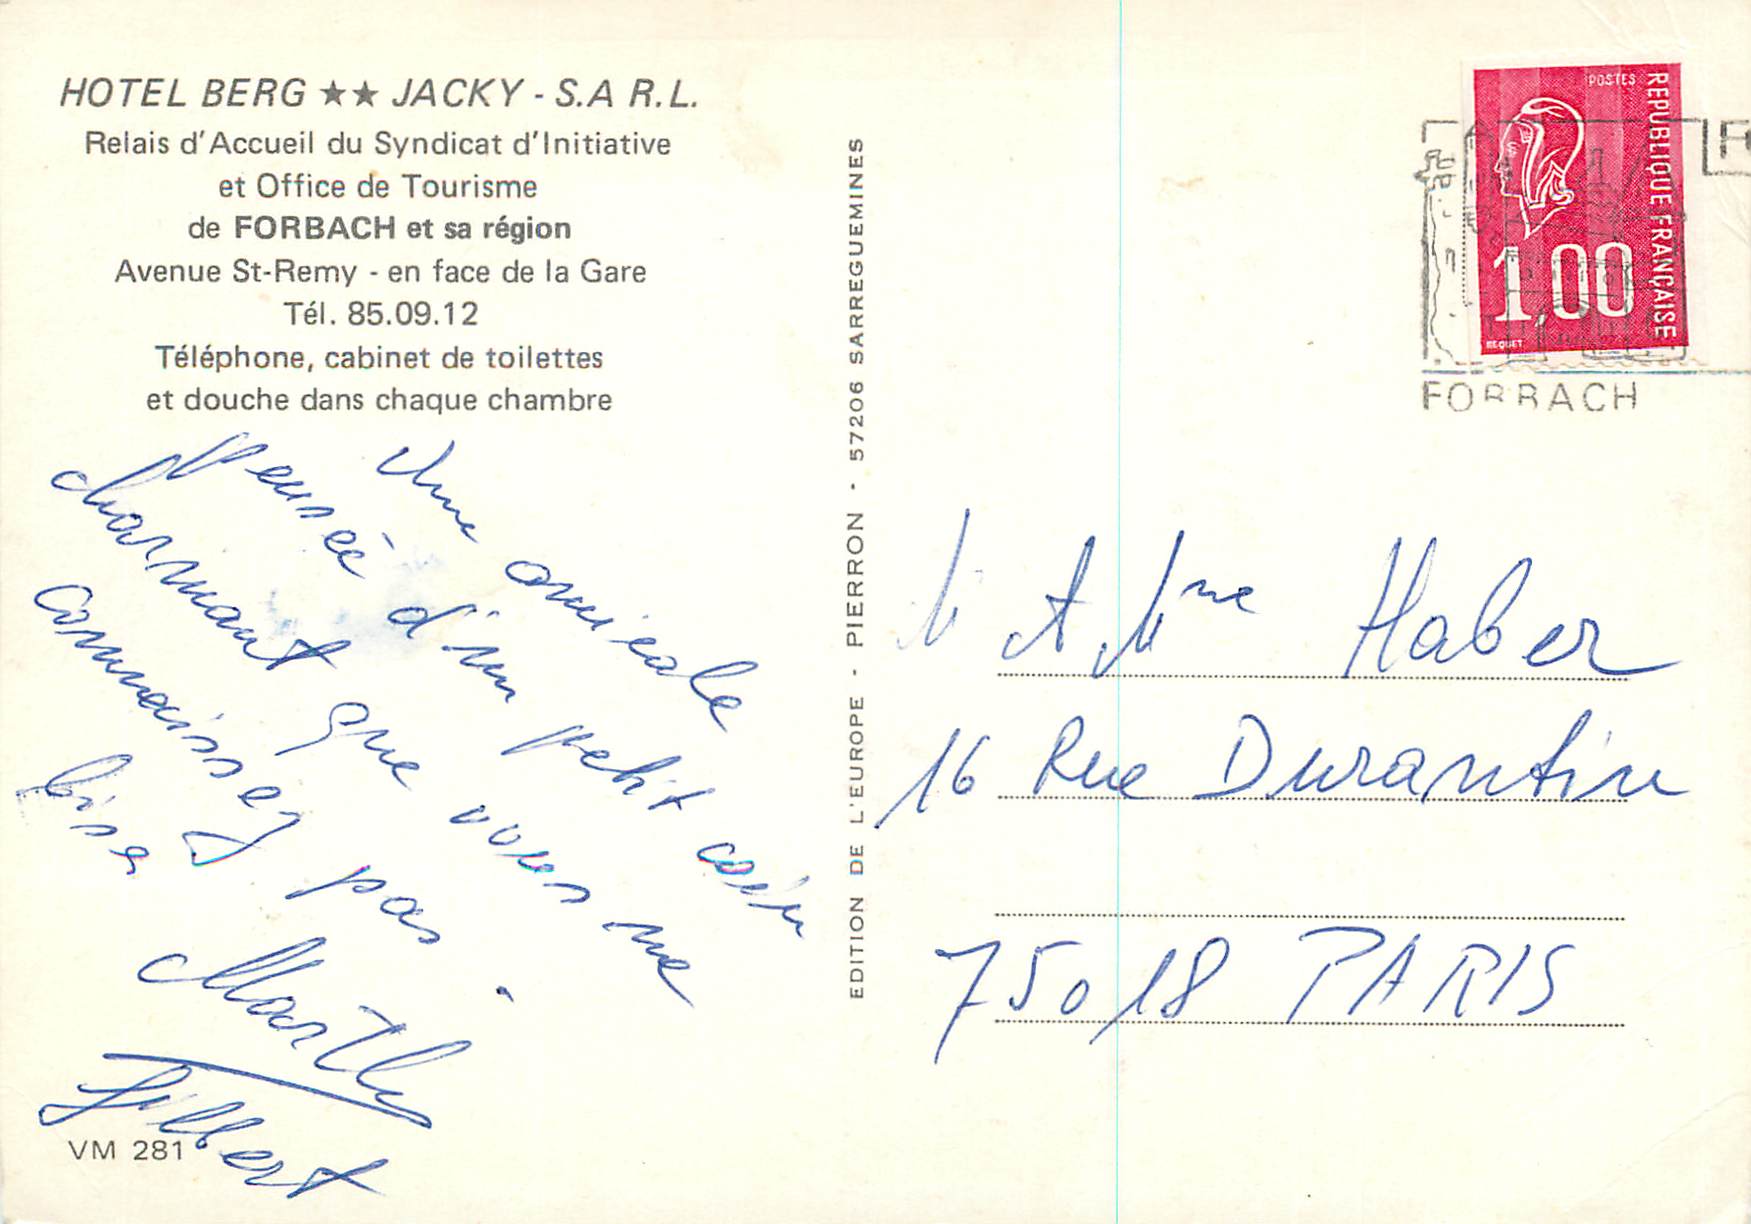 HOTEL BERG ★★ JACKY - S.A R.L.
Relais d'Accueil du Syndicat d'Initiative
et Office de Tourisme
de FORBACH et sa région
Avenue St-Remy - en face de la Gare
Tél. 85.09.12
Téléphone, cabinet de toilettes
et douche dans chaque chambre
Une amicale
pensée d'un petit coin
charmant que vous ne
connaissez pas.
bises
Marthy
Gilbert
VM 281
EDITION DE L'EUROPE - PIERRON - 57206 SARREGUEMINES
POSTES
REPUBLIQUE FRANÇAISE
1,00
BEQUET
FORBACH
M et Mme Haber
16 Rue Durantin
75018 PARIS